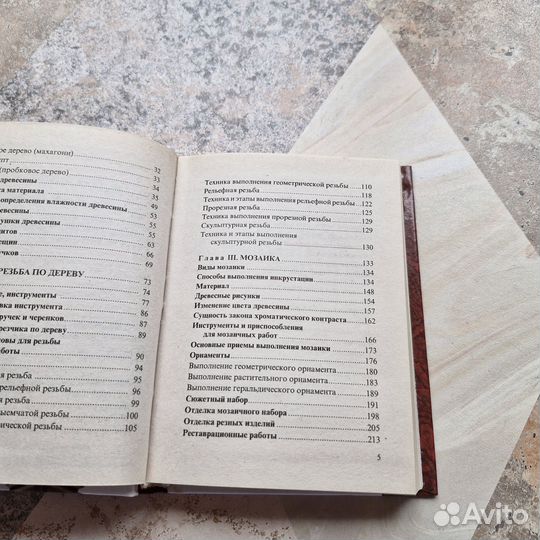 ое дерево (махагони)
пт 32
(пробковое дерево) 33
древесины 34
та материала 35
определения влажности древесины 49
ревесины 53
ушки древесины 55
щитов 63
ещин 66
учков 69
РЕЗЬБА ПО ДЕРЕВУ 73
74
е, инструменты 77
вка инструмента 86
ручек и черенков 87
резчика по дереву
овы для резьбы 90
аботы 94
я резьба 95
рельефной резьбы 96
я резьба 99
ыемчатой резьбы 100
ической резьбы 105
Техника выполнения геометрической резьбы 110
Рельефная резьба 118
Техника и этапы выполнения рельефной резьбы 122
Прорезная резьба 125
Техника выполнения прорезной резьбы 129
Скульптурная резьба 129
Техника и этапы выполнения
скульптурной резьбы 130
Глава III. МОЗАИКА 133
Виды мозаики 133
Способы выполнения инкрустации 134
Материал 144
Древесные рисунки 151
Изменение цвета древесины 157
Сущность закона хроматического контраста 162
Инструменты и приспособления
для мозаичных работ 166
Основные приемы выполнения мозаики 173
Орнаменты 176
Выполнение геометрического орнамента 180
Выполнение растительного орнамента 183
Выполнение геральдического орнамента 189
Сюжетный набор 191
Отделка мозаичного набора 198
Отделка резных изделий 205
Реставрационные работы 213
5
Avito